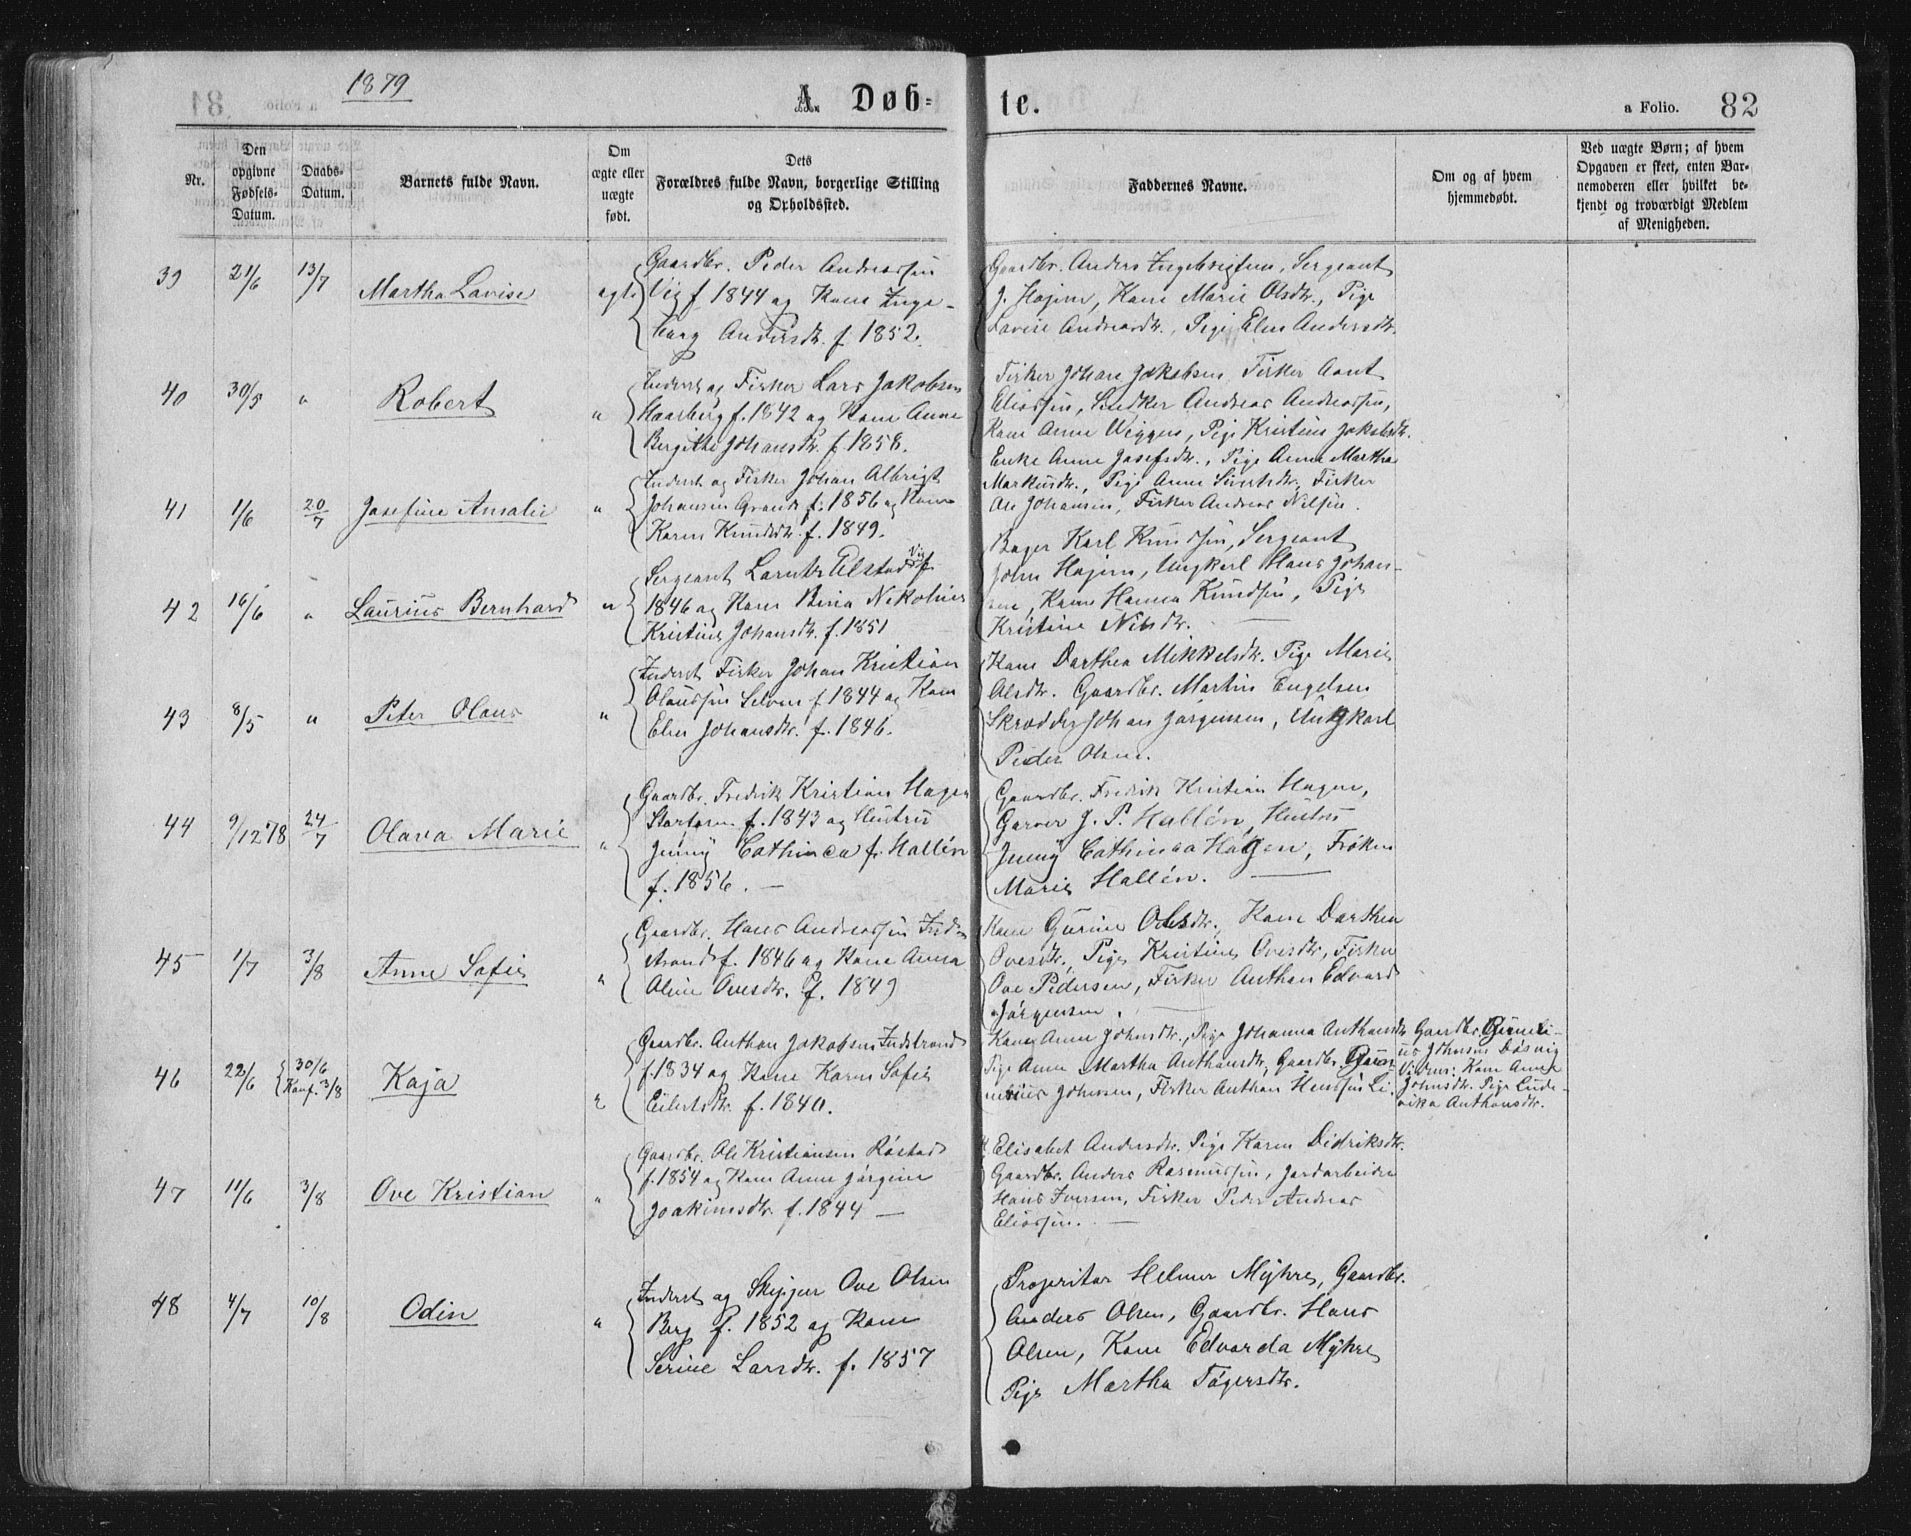 1879
A. Døb=
te.
a Folio. 82
Nr.
Den opgivne Fødsels-Datum.
Daabs-Datum.
Barnets fulde Navn.
Om ægte eller uægte født.
Dets Forældres fulde Navn, borgerlige Stilling og Opholdssted.
Faddernes Navne.
Om og af hvem hjemmedøbt.
Ved uægte Børn; af hvem Opgaven er skeet, enten Barnemoderen eller hvilket bekjendt og troværdigt Medlem af Menigheden.
39 21/6 13/7 Martha Lovise ægte
Gaardbr. Peder Andreassen
Vig f 1844 og Kone Inge-
borg Andersdtr. f. 1852.
Gaardbr. Anders Ingebrigtsen, Sergeant
J. Hojem, Kone Marie Olsdtr., Pige
Lovise Andreasdtr., Pige Elen Andersdtr.
40 30/5 " Robert "
Inderst og Fisker Lars Jakobsen
Haarberg f. 1842 og Kone Anne
Bergithe Johansdtr. f. 1858.
Fisker Johan Jakobsen, Fisker
Eliassen, Andreas Andreassen,
Kone Anne Wiggen, Pige Kristine Jakobsdtr.
41 1/6 20/7 Josefine Amalie "
Inderst og Fisker Johan Albrigt
Johansen Grande f. 1856 og Kone
Karen Knudsdtr. f. 1849.
Enke Anne Josefsdtr., Pige Anne Martha
Markusdtr., Pige Anne Fisker
Ole Johansen, Fisker Andreas Nilsen.
42 16/6 " Laurius Bernhard "
Sergeant Lornts Elstad Vig f
1846 og Kone Bina Nekoline
Kristine Johansdtr. f. 1851
Bager Karl Knudsen, Sergeant
John Hojem, Ungkarl Hans Johan-
sen, Kone Hanna Knudsen, Pige
Kristine Nilsdtr.
43 8/5 " Peter Olaus "
Inderst Fisker Johan Kristian
Olaussen Selven f. 1844 og Kone
Elen Johansdtr. f. 1846.
Kone Dorthea Mikkelsdtr. Pige Marie
Olsdtr. Gaardbr. Martin Engelsen
Skrædder Johan Jørgensen, Ungkarl
Peder Olsen.
44 9/12 78 24/7 Olava Marie "
Gaardbr. Fredrik Kristian Hagen
Storfosen f. 1843 og Hustru
Jenny Cathinca f. Hallén
f. 1856.
Gaardbr. Fredrik Kristian Hagen,
Garver J. P. Hallén, Hustru
Jenny Cathinca Hagen, Frøken
Marie Hallén.
45 1/7 3/8 Anne Sofie "
Gaardbr. Hans Andreassen Ind-
strand f. 1846 og Kone Anna
Oline Ovesdtr. f. 1849
Kone Gurine Olsdtr., Kone Dorthea
Ovesdtr., Pige Kristine Ovesdtr, Fisker
Ove Pedersen, Fisker Anthon Edvard
Jørgensen.
46 22/6 30/6 Konf. 3/8 Kaja "
Gaardbr. Anthon Jakobsen Indstrand
f. 1834 og Kone Karen Sofie
Eilertsdtr. f. 1840.
Kone Anne Johnsdtr., Pige Johanna Anthonsdtr
Pige Anne Martha Anthonsdtr, Gaardbr.
Johnsen, Fisker Anthon
Gaardbr.
us Johnsen Døsvig
Vidner: Kone Anne
Johnsdtr. Pige Lude-
vika Anthonsdtr.
47 11/6 3/8 Ove Kristian "
Gaardbr. Ole Kristiansen Røstad
f. 1854 og Kone Anne Jørgine
Joakimsdtr. f. 1844
K. Elisabet Andersdtr. Pige Karen Didriksdtr.
Gaardbr. Anders Rasmussen, Jordarbeider
Hans Iversen, Fisker Peder Andreas
Eliassen.
48 4/7 10/8 Odin "
Inderst og Skipper Ove Olsen
Berg f. 1852 og Kone
Serine Larsdtr. f. 1857
Proprietær Helmer Myhre, Gaardbr.
Anders Olsen, Gaardbr. Hans
Olsen, Kone Edvarda Myhre
Pige Martha Tøgersdtr.